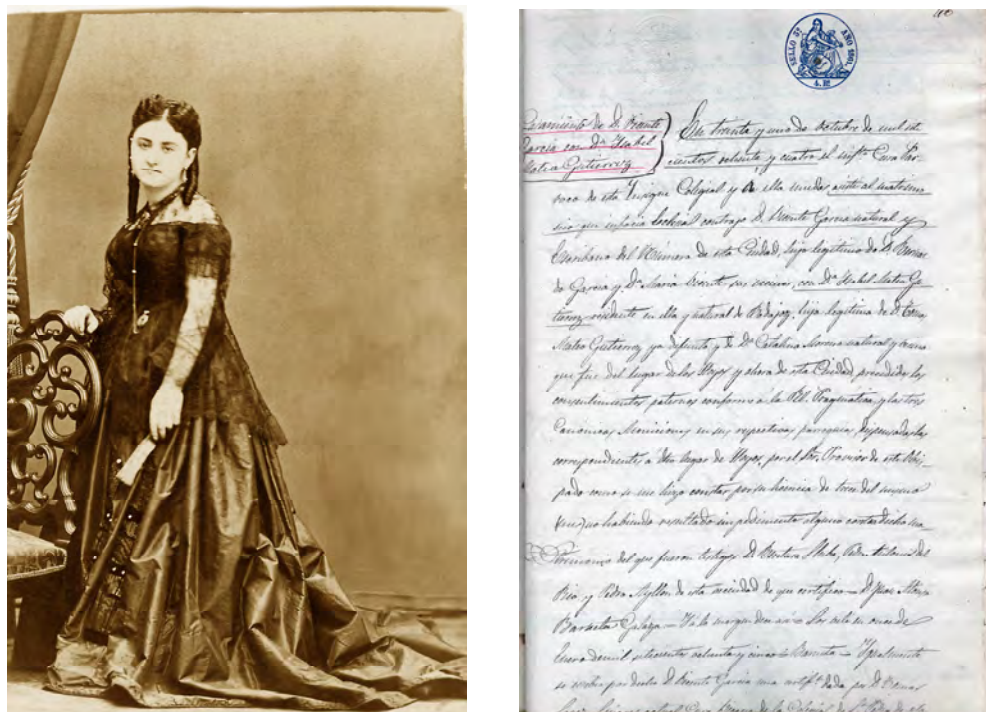 SELLO 3º AÑO 1861.
4. Rs
Casamiento de D. Vicente
Garcia con Dª Ysabel
Mateo Gutierrez
En treinta y uno de octubre de mil sete
cientos ochenta y cuatro el infº Cura Par-
roco de esta Insigne Colegial y de ella unidas asistí al matrimo
nio que infacie Eclesiæ contrajo D. Vicente Garcia natural y
Escribano del Número de esta Ciudad, hijo legitimo de D. Bernar
do Garcia y Dª Maria Vicente sus vecinos, con Dª Ysabel Mateo Gu
tierrez residente en ella y natural de Badajoz, hija legitima de D.
Mateo Gutierrez ya difunto y de Dª Catalina Moreno natural y vecina
que fue del lugar de los Hoyos y ahora de esta Ciudad, precedidos los
consentimientos paternos conforme á la Rl. Pragmatica, y las tres
Canonicas Moniciones en sus respectivas parroquias, dispensadas las
correspondientes a dho lugar de Hoyos, por el Sr. Provisor de este Obis-
pado como se me hizo constar por su licencia de trece del mismo
no habiendo resultado impedimento alguno contra dicho ma-
trimonio del que fueron testigos D. Ventura
Rico y Pedro Ayllon de esta vecindad de que certifico = D. Juan
Barrieta = Y á la margen dice así = Se veló en once de
Enero de mil setecientos ochenta y cinco = Barrieta = Ygualmente
se recibió por dicho D. Vicente Garcia una certifn dada por D.
actual Cura de la Colegial de Sn Pedro de esta